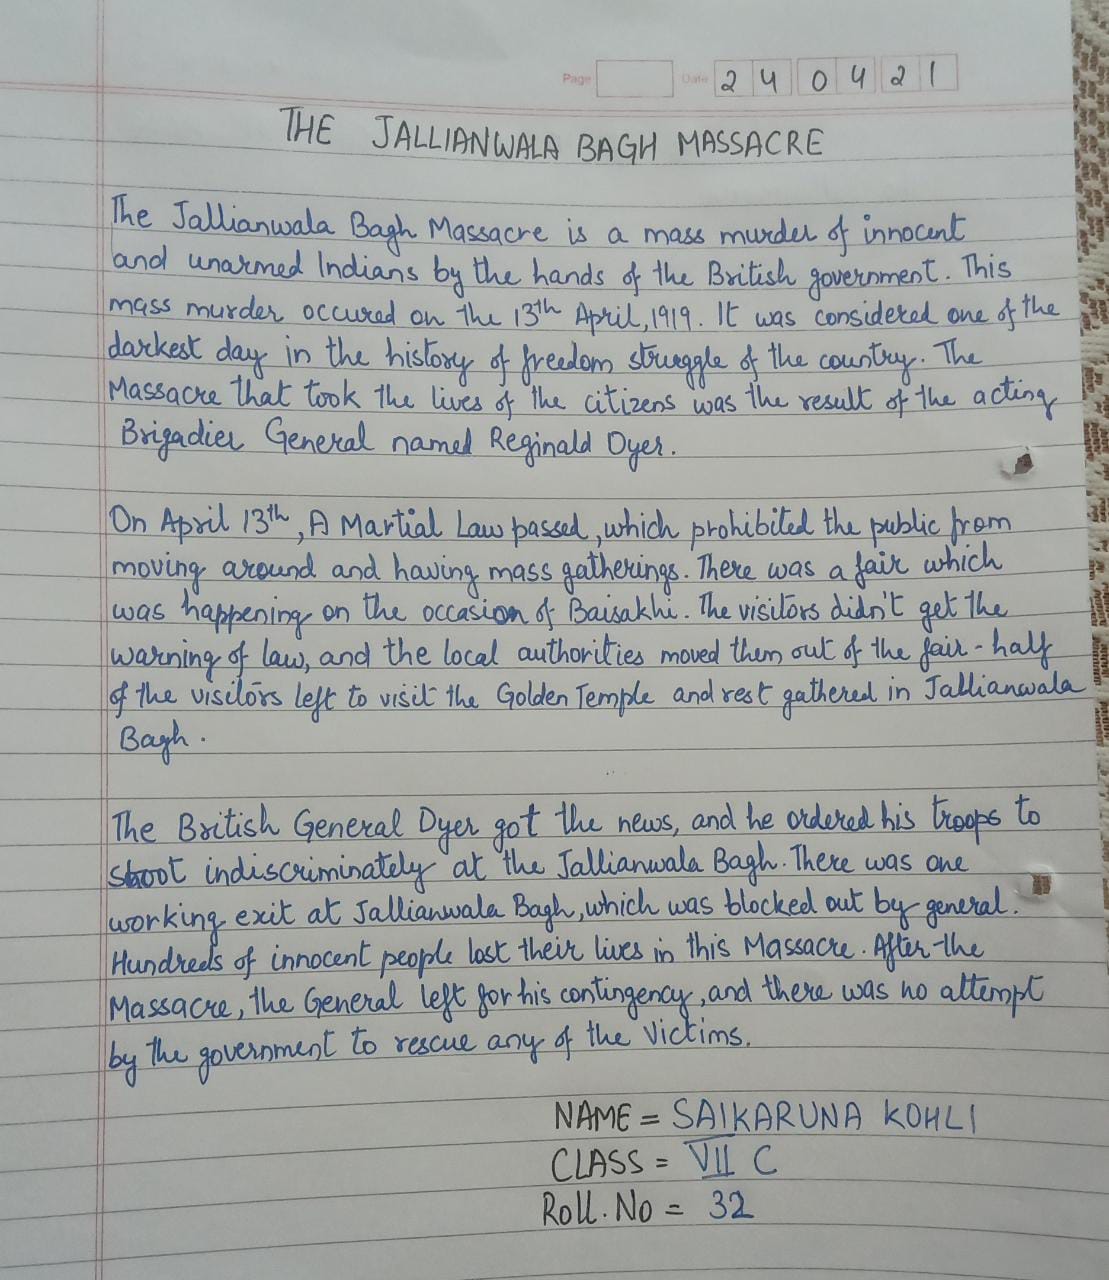 Page Date 240421
THE JALLIANWALA BAGH MASSACRE
The Jallianwala Bagh Massacre is a mass murder of innocent
and unarmed Indians by the hands of the British government. This
mass murder occured on the 13th April, 1919. It was considered one of the
darkest day in the history of freedom struggle of the country. The
Massacre that took the lives of the citizens was the result of the acting
Brigadier General named Reginald Dyer.
On April 13th, A Martial Law passed, which prohibited the public from
moving around and having mass gatherings. There was a fair which
was happening on the occasion of Baisakhi. The visitors didn't get the
warning of law, and the local authorities moved them out of the fair - half
of the visitors left to visit the Golden Temple and rest gathered in Jallianwala
Bagh.
The British General Dyer got the news, and he ordered his troops to
shoot indiscriminately at the Jallianwala Bagh. There was one
working exit at Jallianwala Bagh, which was blocked out by general.
Hundreds of innocent people lost their lives in this Massacre. After the
Massacre, the General left for his contingency, and there was no attempt
by the government to rescue any of the victims.
NAME = SAIKARUNA KOHLI
CLASS = VII C
Roll. No = 32